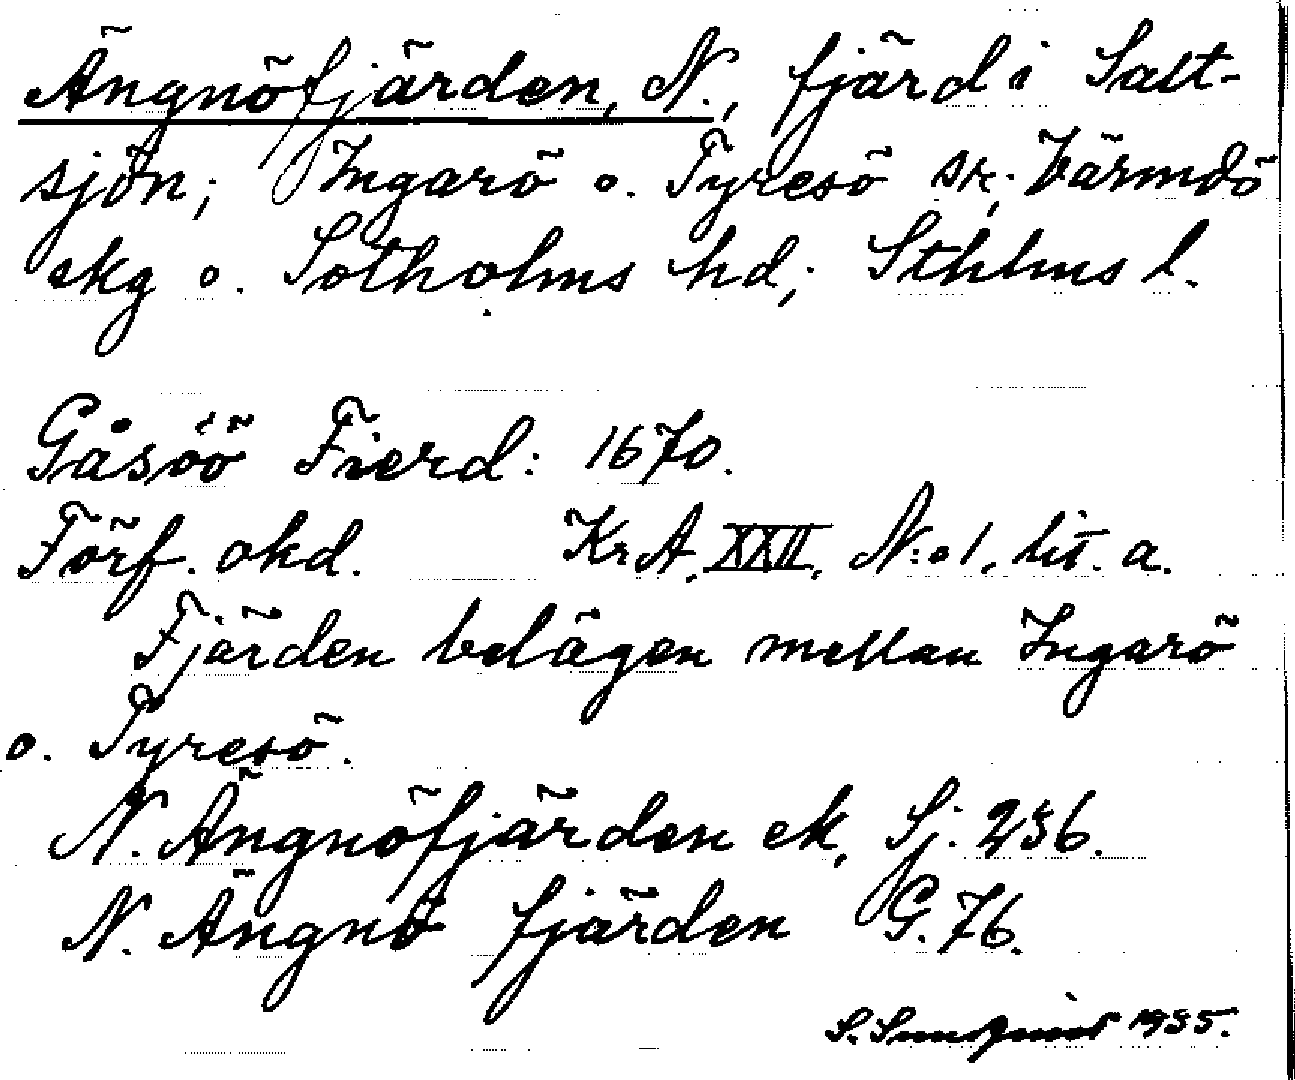 Ängnöfjärden, N., fjärd i Salt-
sjön; Ingarö o. Tyresö sk; Värmdö
skg o. Sotholms hd; Sthlms l.
Gåsöö Fierd: 1670.
Förf. okd. Kr.A. XXII, N:o 1, lit. a.
Fjärden belägen mellan Ingarö
o. Tyresö.
N. Ängnöfjärden ek, Sj. 236.
N. Ängnö fjärden G. 76.
S. Sundquist 1935.